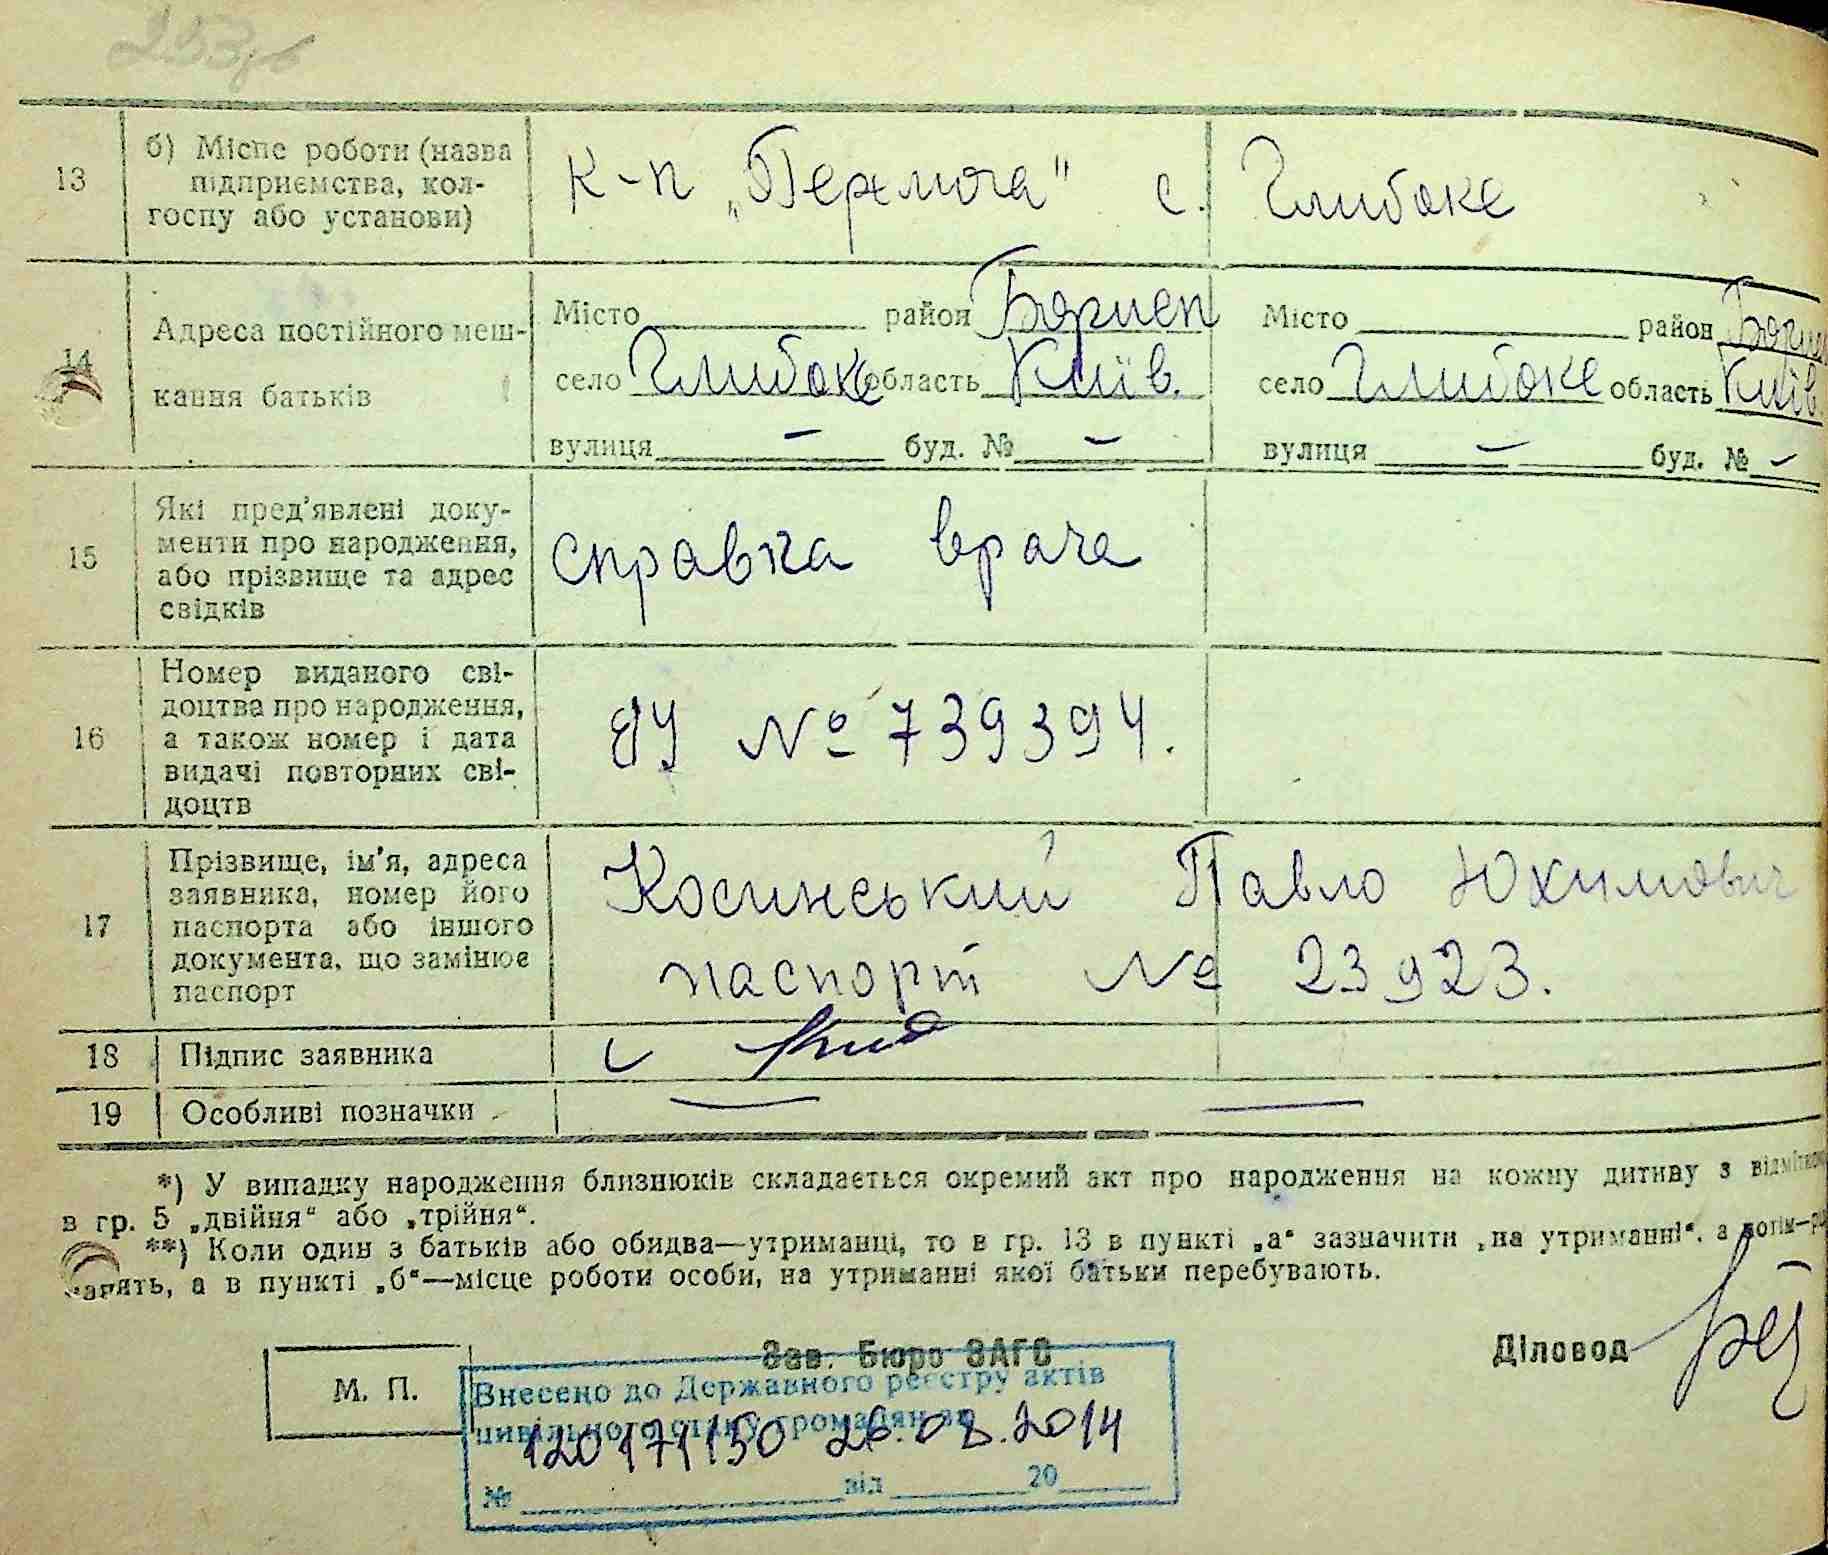 253зв
13
б) Місце роботи (назва
підприємства, кол-
госпу або установи)
к-п „Перемога" с. Глибоке
14
Адреса постійного меш-
кання батьків
Місто район Борисп
село Глибоке область Київ.
вулиця — буд. № —
Місто район Борисп
село Глибоке область Київ.
вулиця — буд. № —
15
Які пред'явлені доку-
менти про народження,
або прізвище та адрес
свідків
справка врача
16
Номер виданого сві-
доцтва про народження,
а також номер і дата
видачі повторних сві-
доцтв
№ 739394.
17
Прізвище, ім'я, адреса
заявника, номер його
паспорта або іншого
документа, що замінює
паспорт
Косинський Павло Юхимович
паспорт № 23923.
18
Підпис заявника
19
Особливі позначки
*) У випадку народження близнюків складається окремий акт про народження на кожну дитину з відміткою
в гр. 5 „двійня" або „трійня".
**) Коли один з батьків або обидва—утриманці, то в гр. 13 в пункті „а" зазначити „на утриманні", а потім—
а в пункті „б"—місце роботи особи, на утриманні якої батьки перебувають.
М. П.
Зав. Бюро ЗАГС
Діловод
Внесено до Державного реєстру актів
цивільного стану громадян за
120171150 26.08.2014
№ від 20